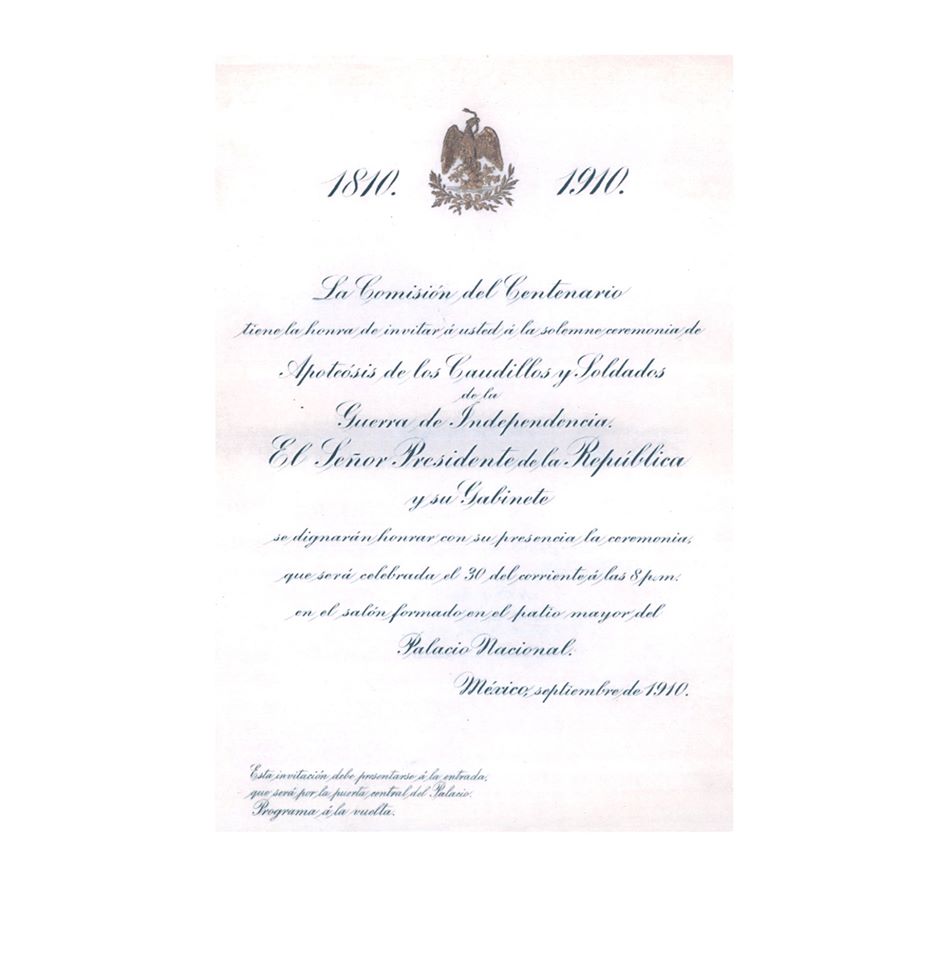 1810. 1910.
La Comisión del Centenario
tiene la honra de invitar á usted á la solemne ceremonia de
Apoteósis de los Caudillos y Soldados
de la
Guerra de Independencia.
El Señor Presidente de la República
y su Gabinete
se dignarán honrar con su presencia la ceremonia,
que será celebrada el 30 del corriente á las 8 p.m.
en el salón formado en el patio mayor del
Palacio Nacional.
México, septiembre de 1910.
Esta invitación debe presentarse á la entrada,
que será por la puerta central del Palacio.
Programa á la vuelta.